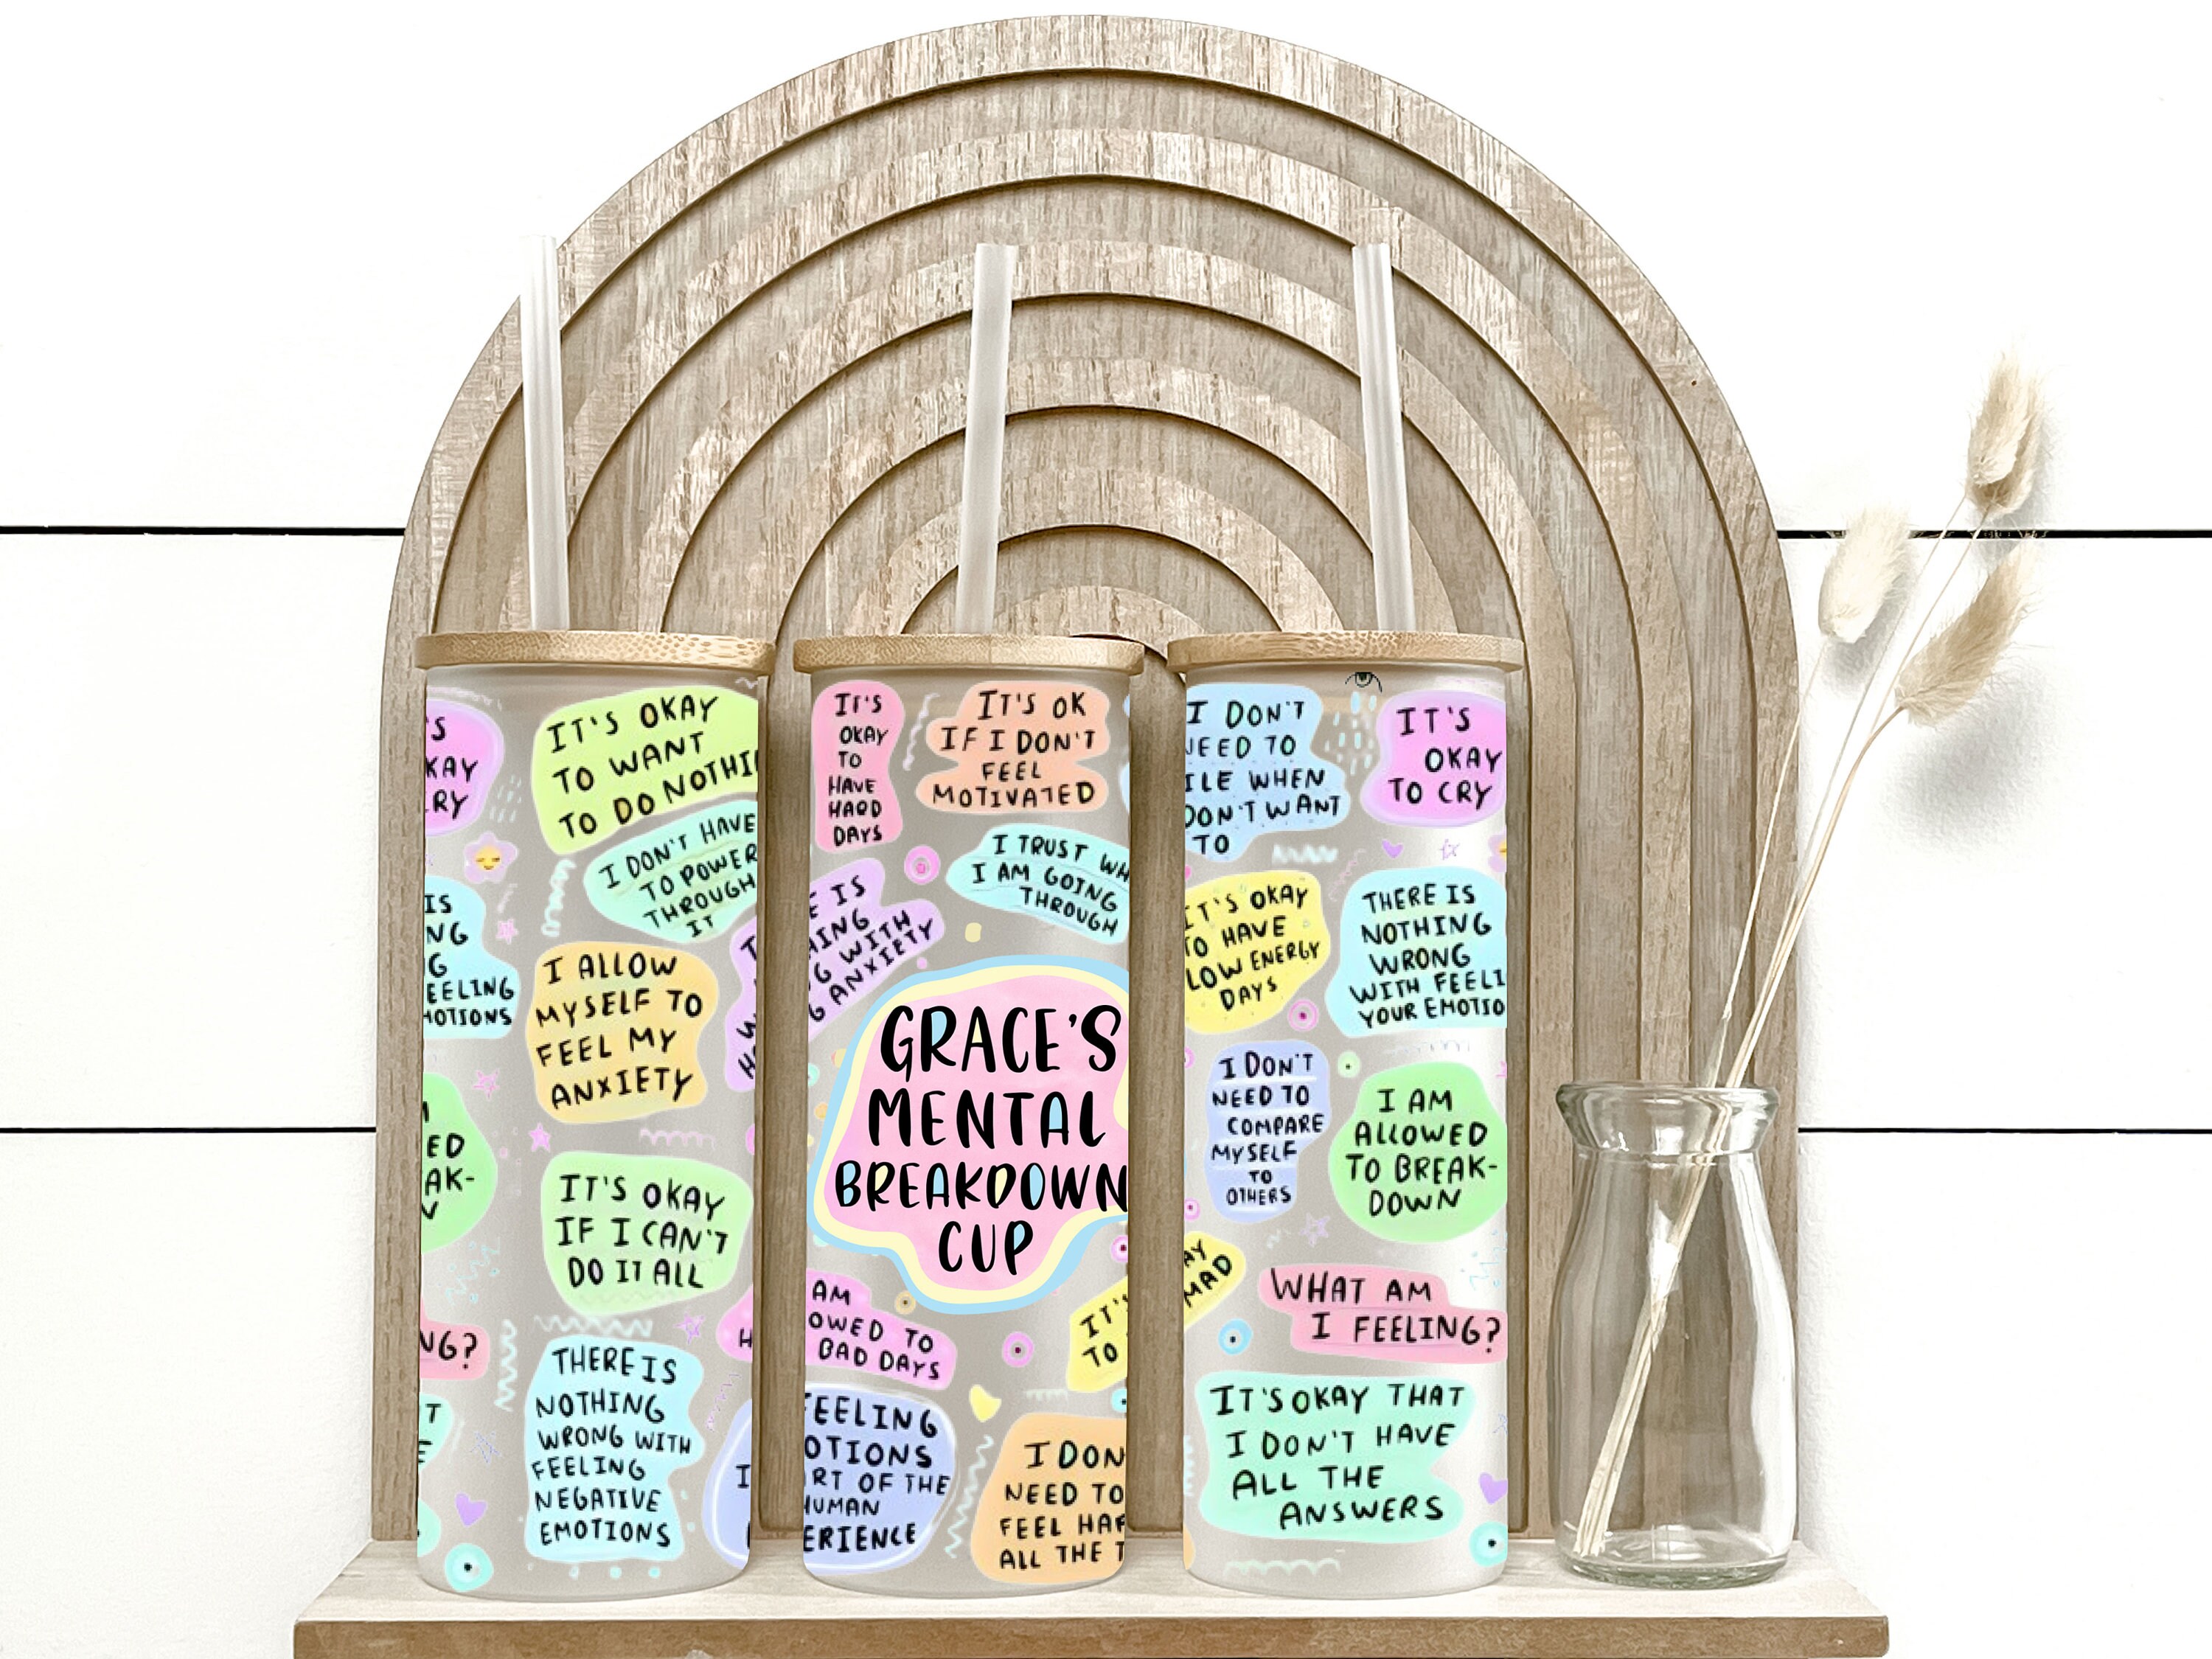 'S
KAY
RY
IT'S OKAY
TO WANT
TO DO NOTHI
I DON'T HAVE
TO POWER
THROUGH
IT
IS
NG
G
EELING
MOTIONS
I ALLOW
MYSELF TO
FEEL MY
ANXIETY
ED
AK-
N
IT'S OKAY
IF I CAN'T
DO IT ALL
NG?
THERE IS
NOTHING
WRONG WITH
FEELING
NEGATIVE
EMOTIONS
IT'S
OKAY
TO
HAVE
HARD
DAYS
IT'S OK
IF I DON'T
FEEL
MOTIVATED
I TRUST WH
I AM GOING
THROUGH
E IS
HING
G WITH
G ANXIETY
GRACE'S
MENTAL
BREAKDOWN
CUP
AM
OWED TO
BAD DAYS
IT'S
TO
FEELING
OTIONS
RT OF THE
HUMAN
ERIENCE
I DON
NEED TO
FEEL HAP
ALL THE T
I DON'T
NEED TO
ILE WHEN
DON'T WANT
TO
IT'S
OKAY
TO CRY
IT'S OKAY
TO HAVE
LOW ENERGY
DAYS
THERE IS
NOTHING
WRONG
WITH FEELI
YOUR EMOTIO
I DON'T
NEED TO
COMPARE
MYSELF
TO
OTHERS
I AM
ALLOWED
TO BREAK-
DOWN
AY
MAD
WHAT AM
I FEELING?
IT'S OKAY THAT
I DON'T HAVE
ALL THE
ANSWERS